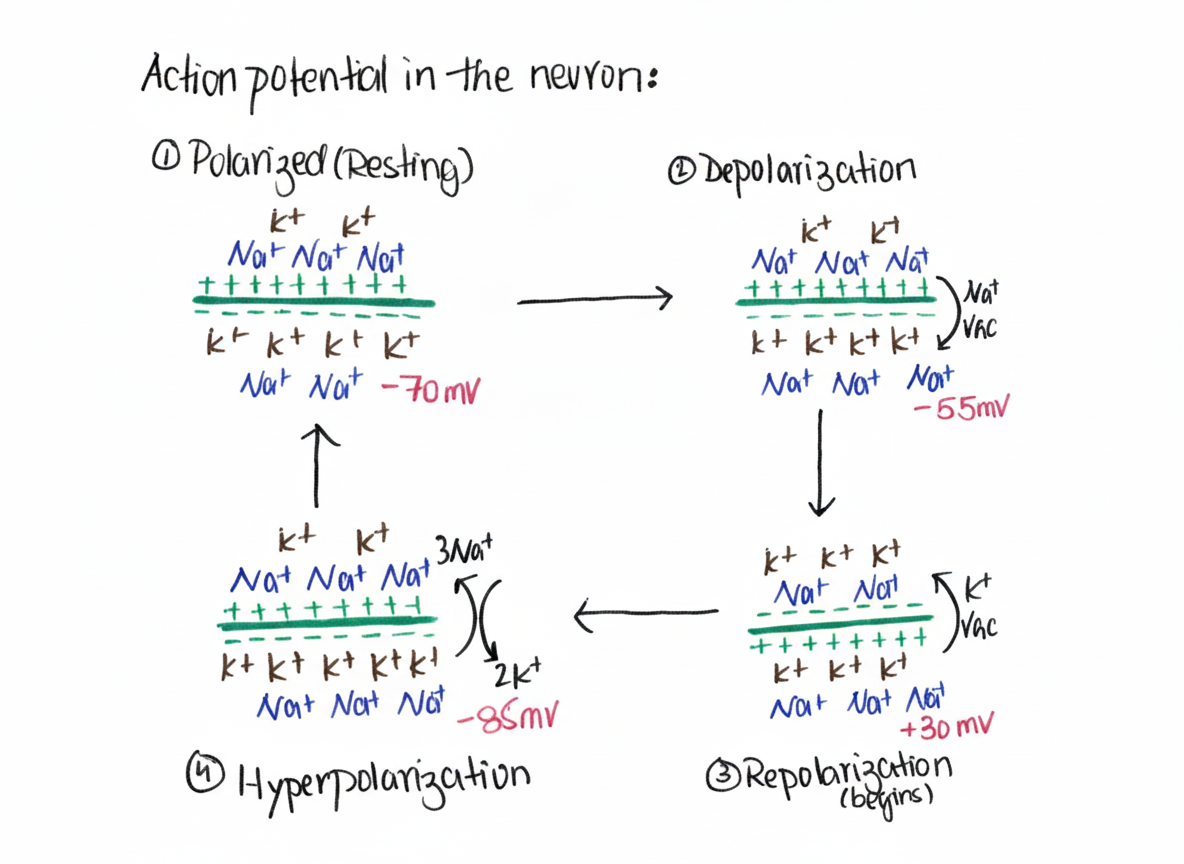 Action potential in the neuron:
① Polarized (Resting)
K+ K+
Na+ Na+ Na+
+ + + + + + + + +
− − − − − − − − −
K+ K+ K+ K+
Na+ Na+ -70mV
② Depolarization
K+ K+
Na+ Na+ Na+
+ + + + + + + + +
Na+
− − − − − − − − −
VGC
K+ K+ K+ K+
Na+ Na+ Na+
-55mV
K+ K+ K+
Na+ Na+
K+
− − − − − − − −
VGC
+ + + + + + + +
K+ K+ K+
Na+ Na+ Na+
+30 mV
③ Repolarization
(begins)
K+ K+
3Na+
Na+ Na+ Na+
+ + + + + + + +
− − − − − − − −
K+ K+ K+ K+ K+
2K+
Na+ Na+ Na+
-85mV
④ Hyperpolarization